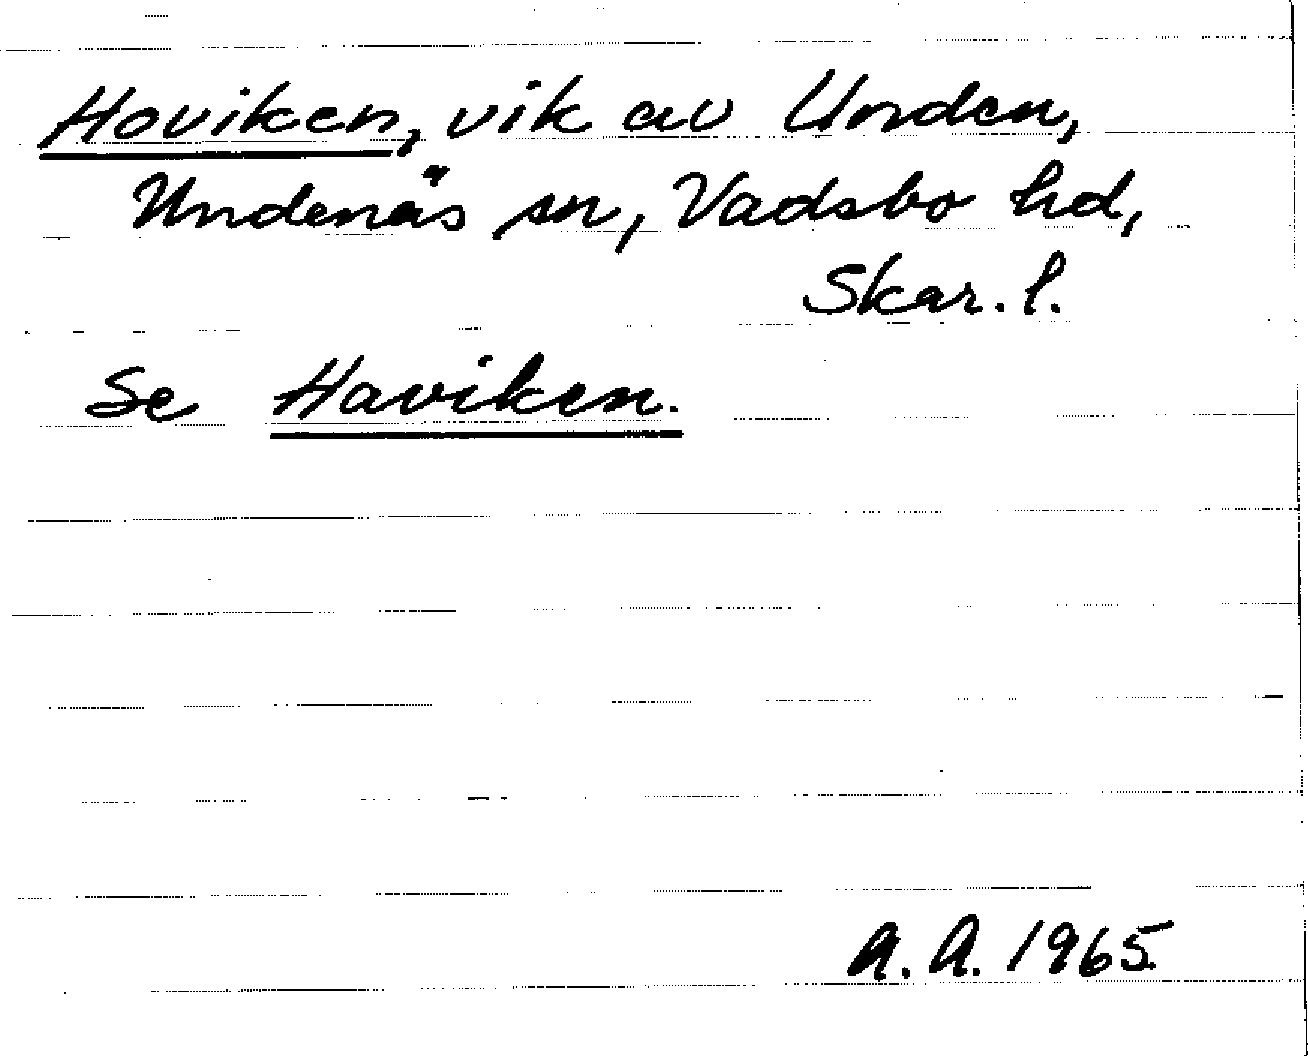 Hoviken, vik av Unden,
Undenäs sn, Vadsbo hd,
Skar. l.
Se Haviken.
A. A. 1965.